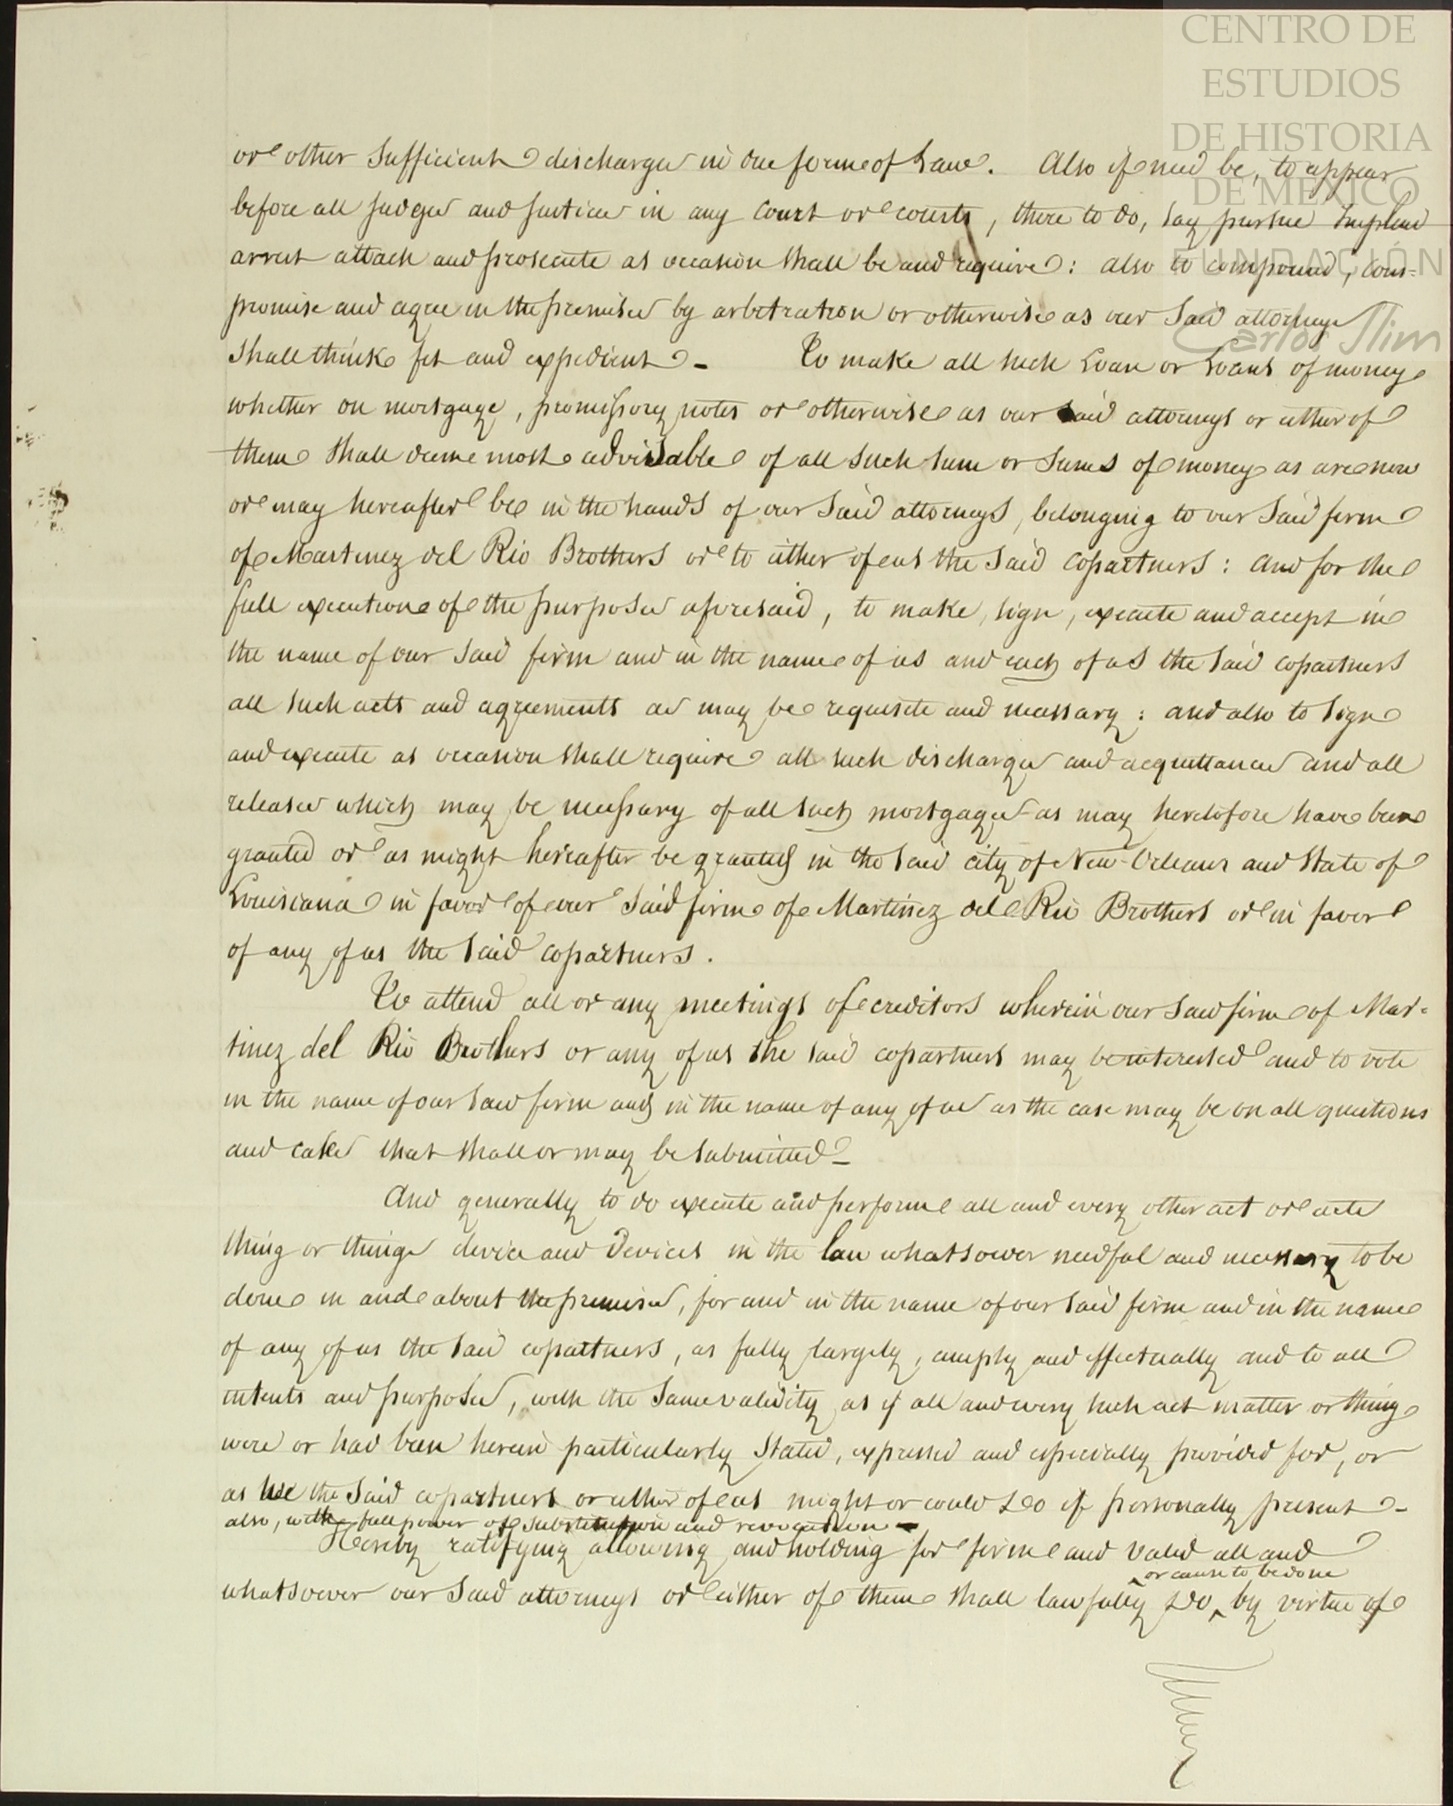 CENTRO DE
ESTUDIOS
DE HISTORIA
DE MÉXICO
FUNDACIÓN
Carlos Slim
or other sufficient discharges in due forme of Law. Also if need be, to appear
before all Judges and Justices in any Court or courts, there to do, say pursue implead
arrest attach and prosecute as occasion shall be and require: also to compound, com-
promise and agree in the premises by arbitration or otherwise as our said attorneys
shall think fit and expedient - To make all such Loan or Loans of money
whether on mortgage, promissory notes or otherwise as our said attorneys or either of
them shall deeme most advisable of all such sum or sums of money as are now
or may hereafter be in the hands of our said attorneys, belonging to our said firm
of Martinez del Rio Brothers or to either of us the said copartners: and for the
full execution of the purposes aforesaid, to make, sign, execute and accept in
the name of our said firm and in the name of us and each of us the said copartners
all such acts and agreements as may be requisite and necessary: and also to sign
and execute as occasion shall require all such discharges and acquittances and all
releases which may be necessary of all such mortgages as may heretofore have been
granted or as might hereafter be granted in the said city of New-Orleans and State of
Louisiana in favor of our said firm of Martinez del Rio Brothers or in favor
of any of us the said copartners.
To attend all or any meetings of creditors wherein our said firm of Mar-
tinez del Rio Brothers or any of us the said copartners may be interested and to vote
in the name of our said firm and in the name of any of us as the case may be on all questions
and cases that shall or may be submitted -
And generally to do execute and perform all and every other act or acts
thing or things device and devices in the law whatsoever needful and necessary to be
done in and about the premises, for and in the name of our said firm and in the name
of any of us the said copartners, as fully largely, amply and effectually and to all
intents and purposes, with the same validity as if all and every such act matter or thing
were or had been herein particularly stated, expressed and especially provided for, or
as we the said copartners or either of us might or could do if personally present -
also, with full power of substitution and revocation -
Hereby ratifying allowing and holding for firm and valid all and
or cause to be done
whatsoever our said attorneys or either of them shall lawfully do by virtue of